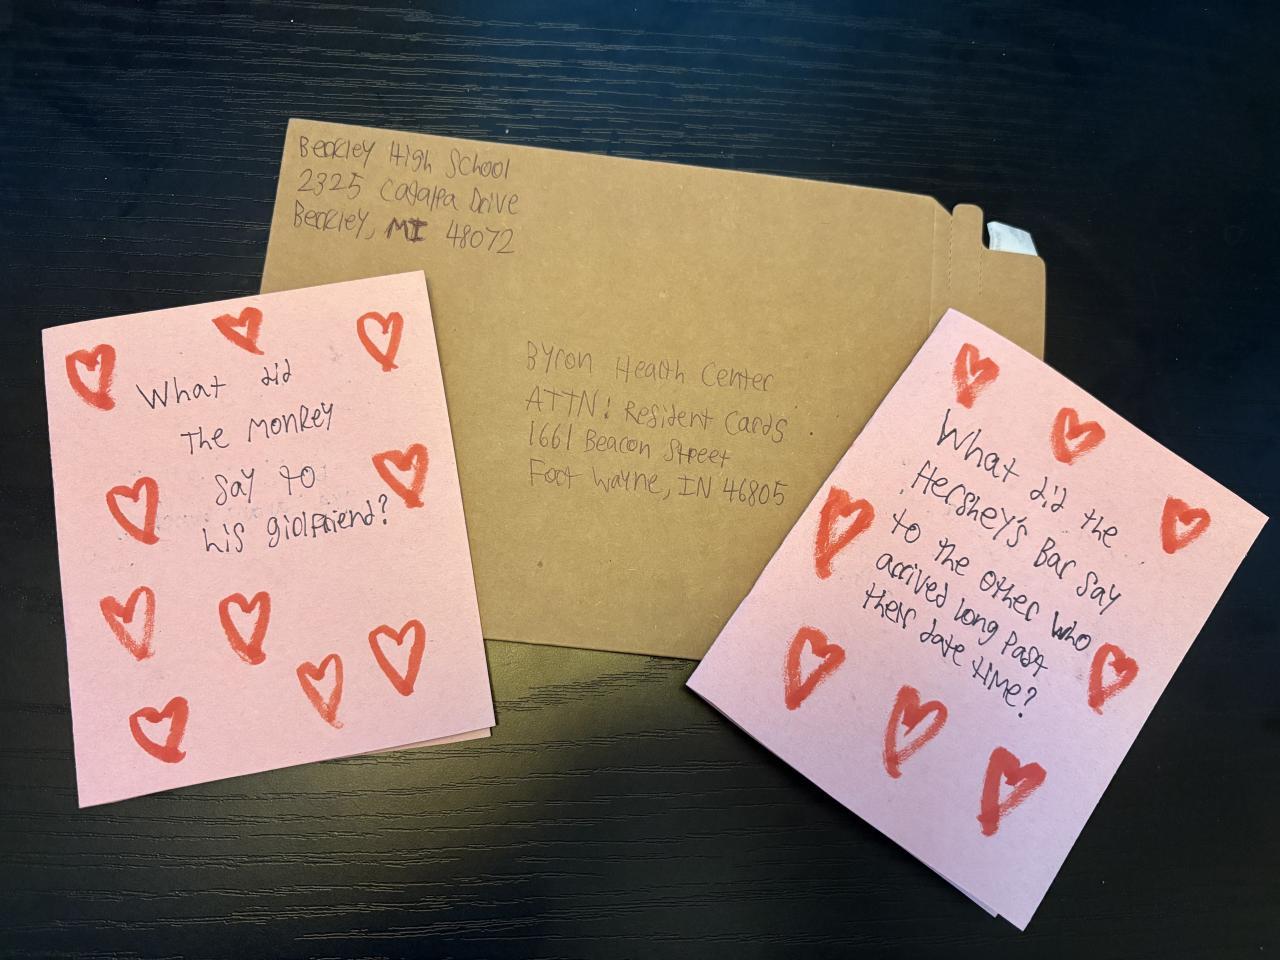 Berkley High School
2325 Catalpa Drive
Berkley, MI 48072
Byron Health Center
ATTN: Resident Cards
1661 Beacon Street
Fort Wayne, IN 46805
What did
The Monkey
Say to
his girlfriend?
What did the
Hershey's Bar Say
to the other who
arrived long past
their date time?